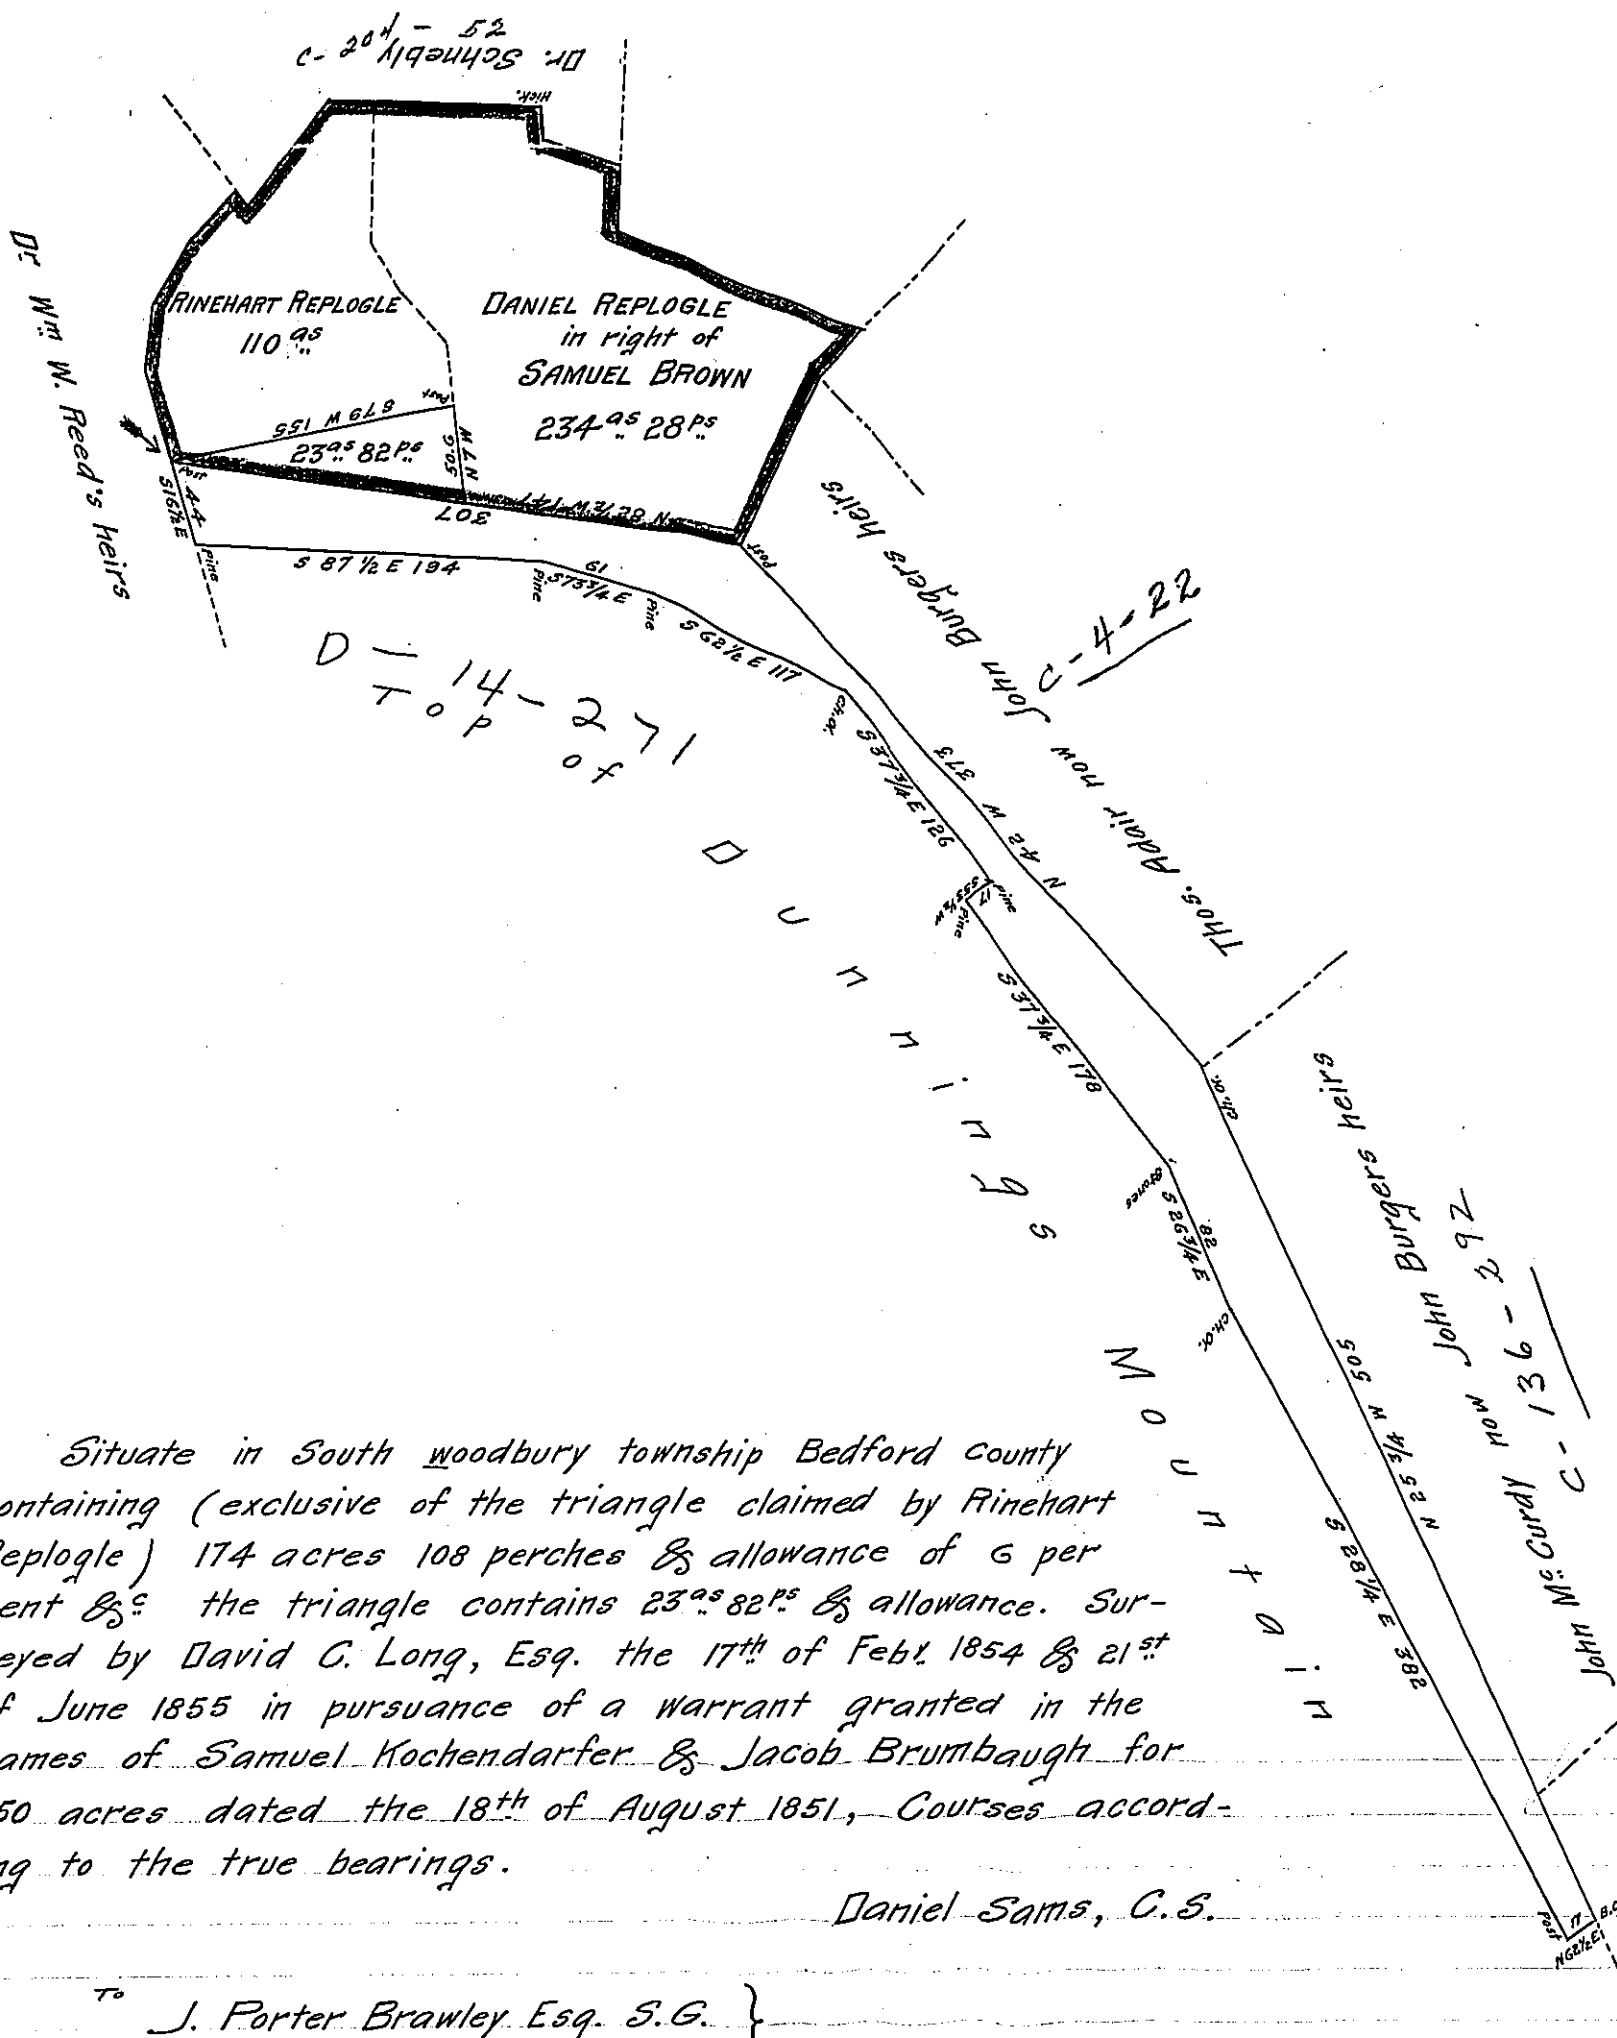 C-204-52
Dr. Schnebly
Hick.
Dr Wm. W. Reed's heirs
RINEHART REPLOGLE
110 as
DANIEL REPLOGLE
in right of
SAMUEL BROWN
234 as 28 ps
S 79 W 155
Post
23 as 82 ps
N 7 W
50.6
Post
44
S 16 1/2 E
N 82 1/2 W 147
307
Pine
S 87 1/2 E 194
Pine
61
S 73 3/4 E
Pine
S 62 1/2 E 117
Post
Ch.o.
S 37 3/4 E 126
Pine
17
S 55 1/2 W
Pine
S 37 3/4 E 178
Stones
82
S 26 3/4 E
Ch.o.
S 28 1/4 E 382
Post
17
N 62 1/2 E
B.O
N 25 3/4 W 505
Ch.o.
N 42 W 373
D-14-271
Top of
Dunnings
Mountain
Thos. Adair now John Burgers heirs
C-4-22
John McCurdy now John Burgers heirs
C-136-292
Situate in South woodbury township Bedford county
ontaining (exclusive of the triangle claimed by Rinehart
eplogle) 174 acres 108 perches & allowance of 6 per
ent &c the triangle contains 23 as 82 ps & allowance. Sur-
eyed by David C. Long, Esq. the 17th of Feby. 1854 & 21st
f June 1855 in pursuance of a warrant granted in the
ames of Samuel Kochendarfer & Jacob Brumbaugh for
50 acres dated the 18th of August 1851, Courses accord-
ng to the true bearings.
Daniel Sams, C.S.
To
J. Porter Brawley Esq. S.G. }